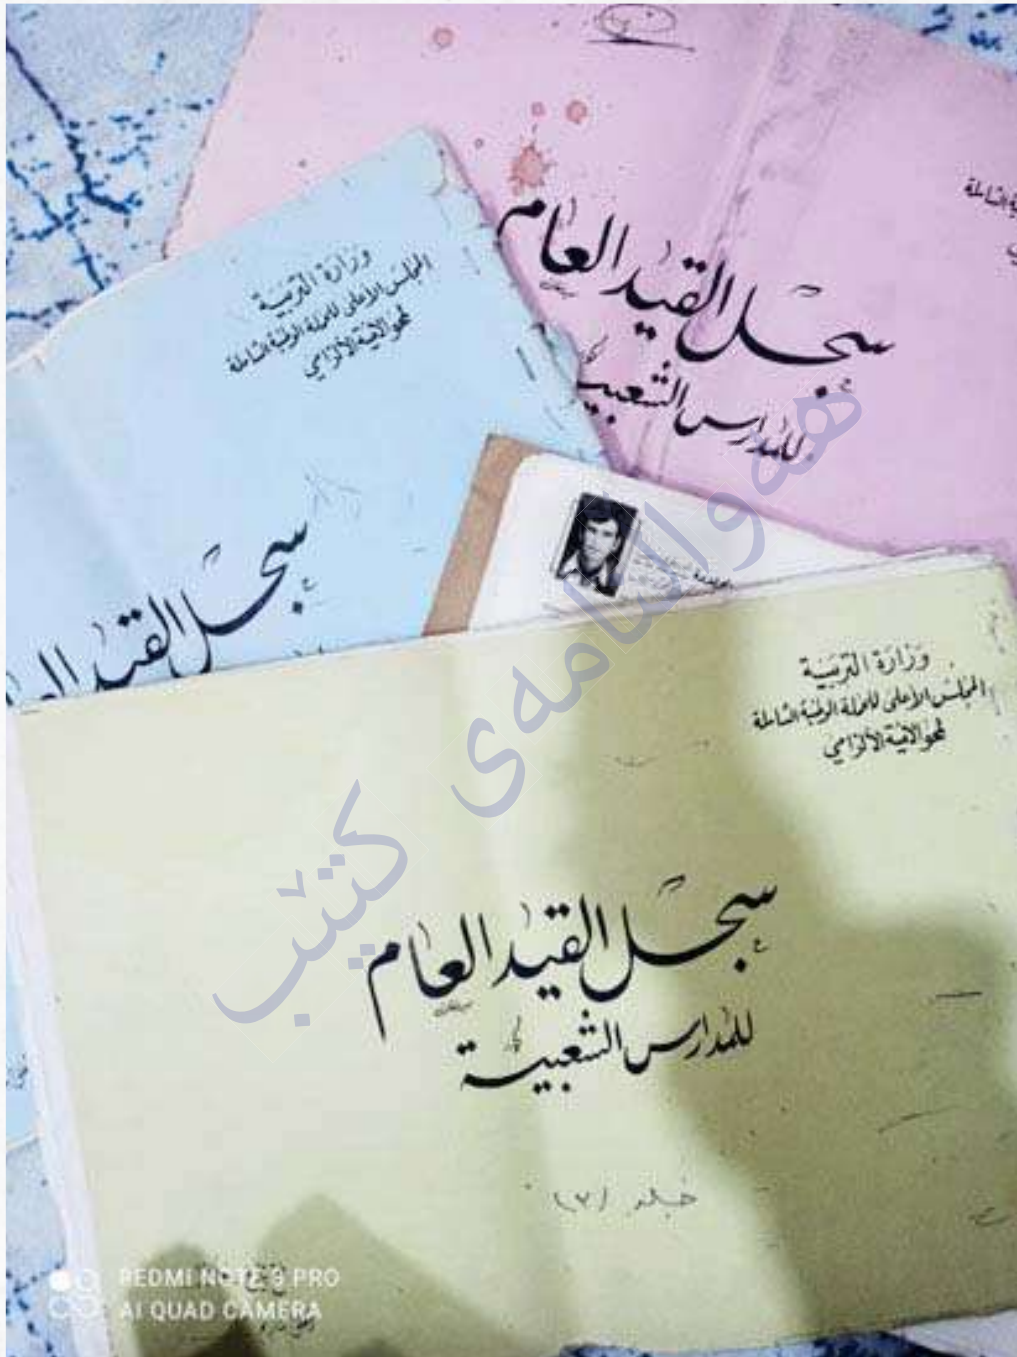 سجل القيد العام
للمدارس الشعبية
وزارة التربية
المجلس الأعلى للحملة الوطنية الشاملة
لمحو الأمية الألزامي
سجل القيد العام
وزارة التربية
المجلس الأعلى للحملة الوطنية الشاملة
لمحو الأمية الألزامي
سجل القيد العام
للمدارس الشعبية
هەواڵنامەی کتێب
REDMI NOTE 9 PRO
AI QUAD CAMERA